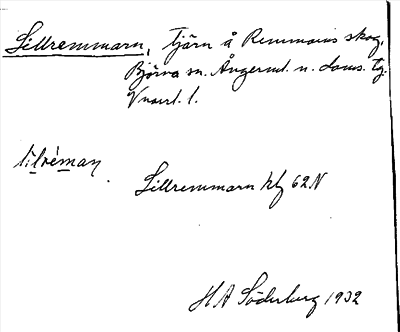 Lillremmarn, tjärn å Remmarns skog,
Björna sn. Ångerml. n. doms. tg.
Vnorrl. l.
lilrèman
Lillremmarn kbl 62N
HA Söderberg 1932